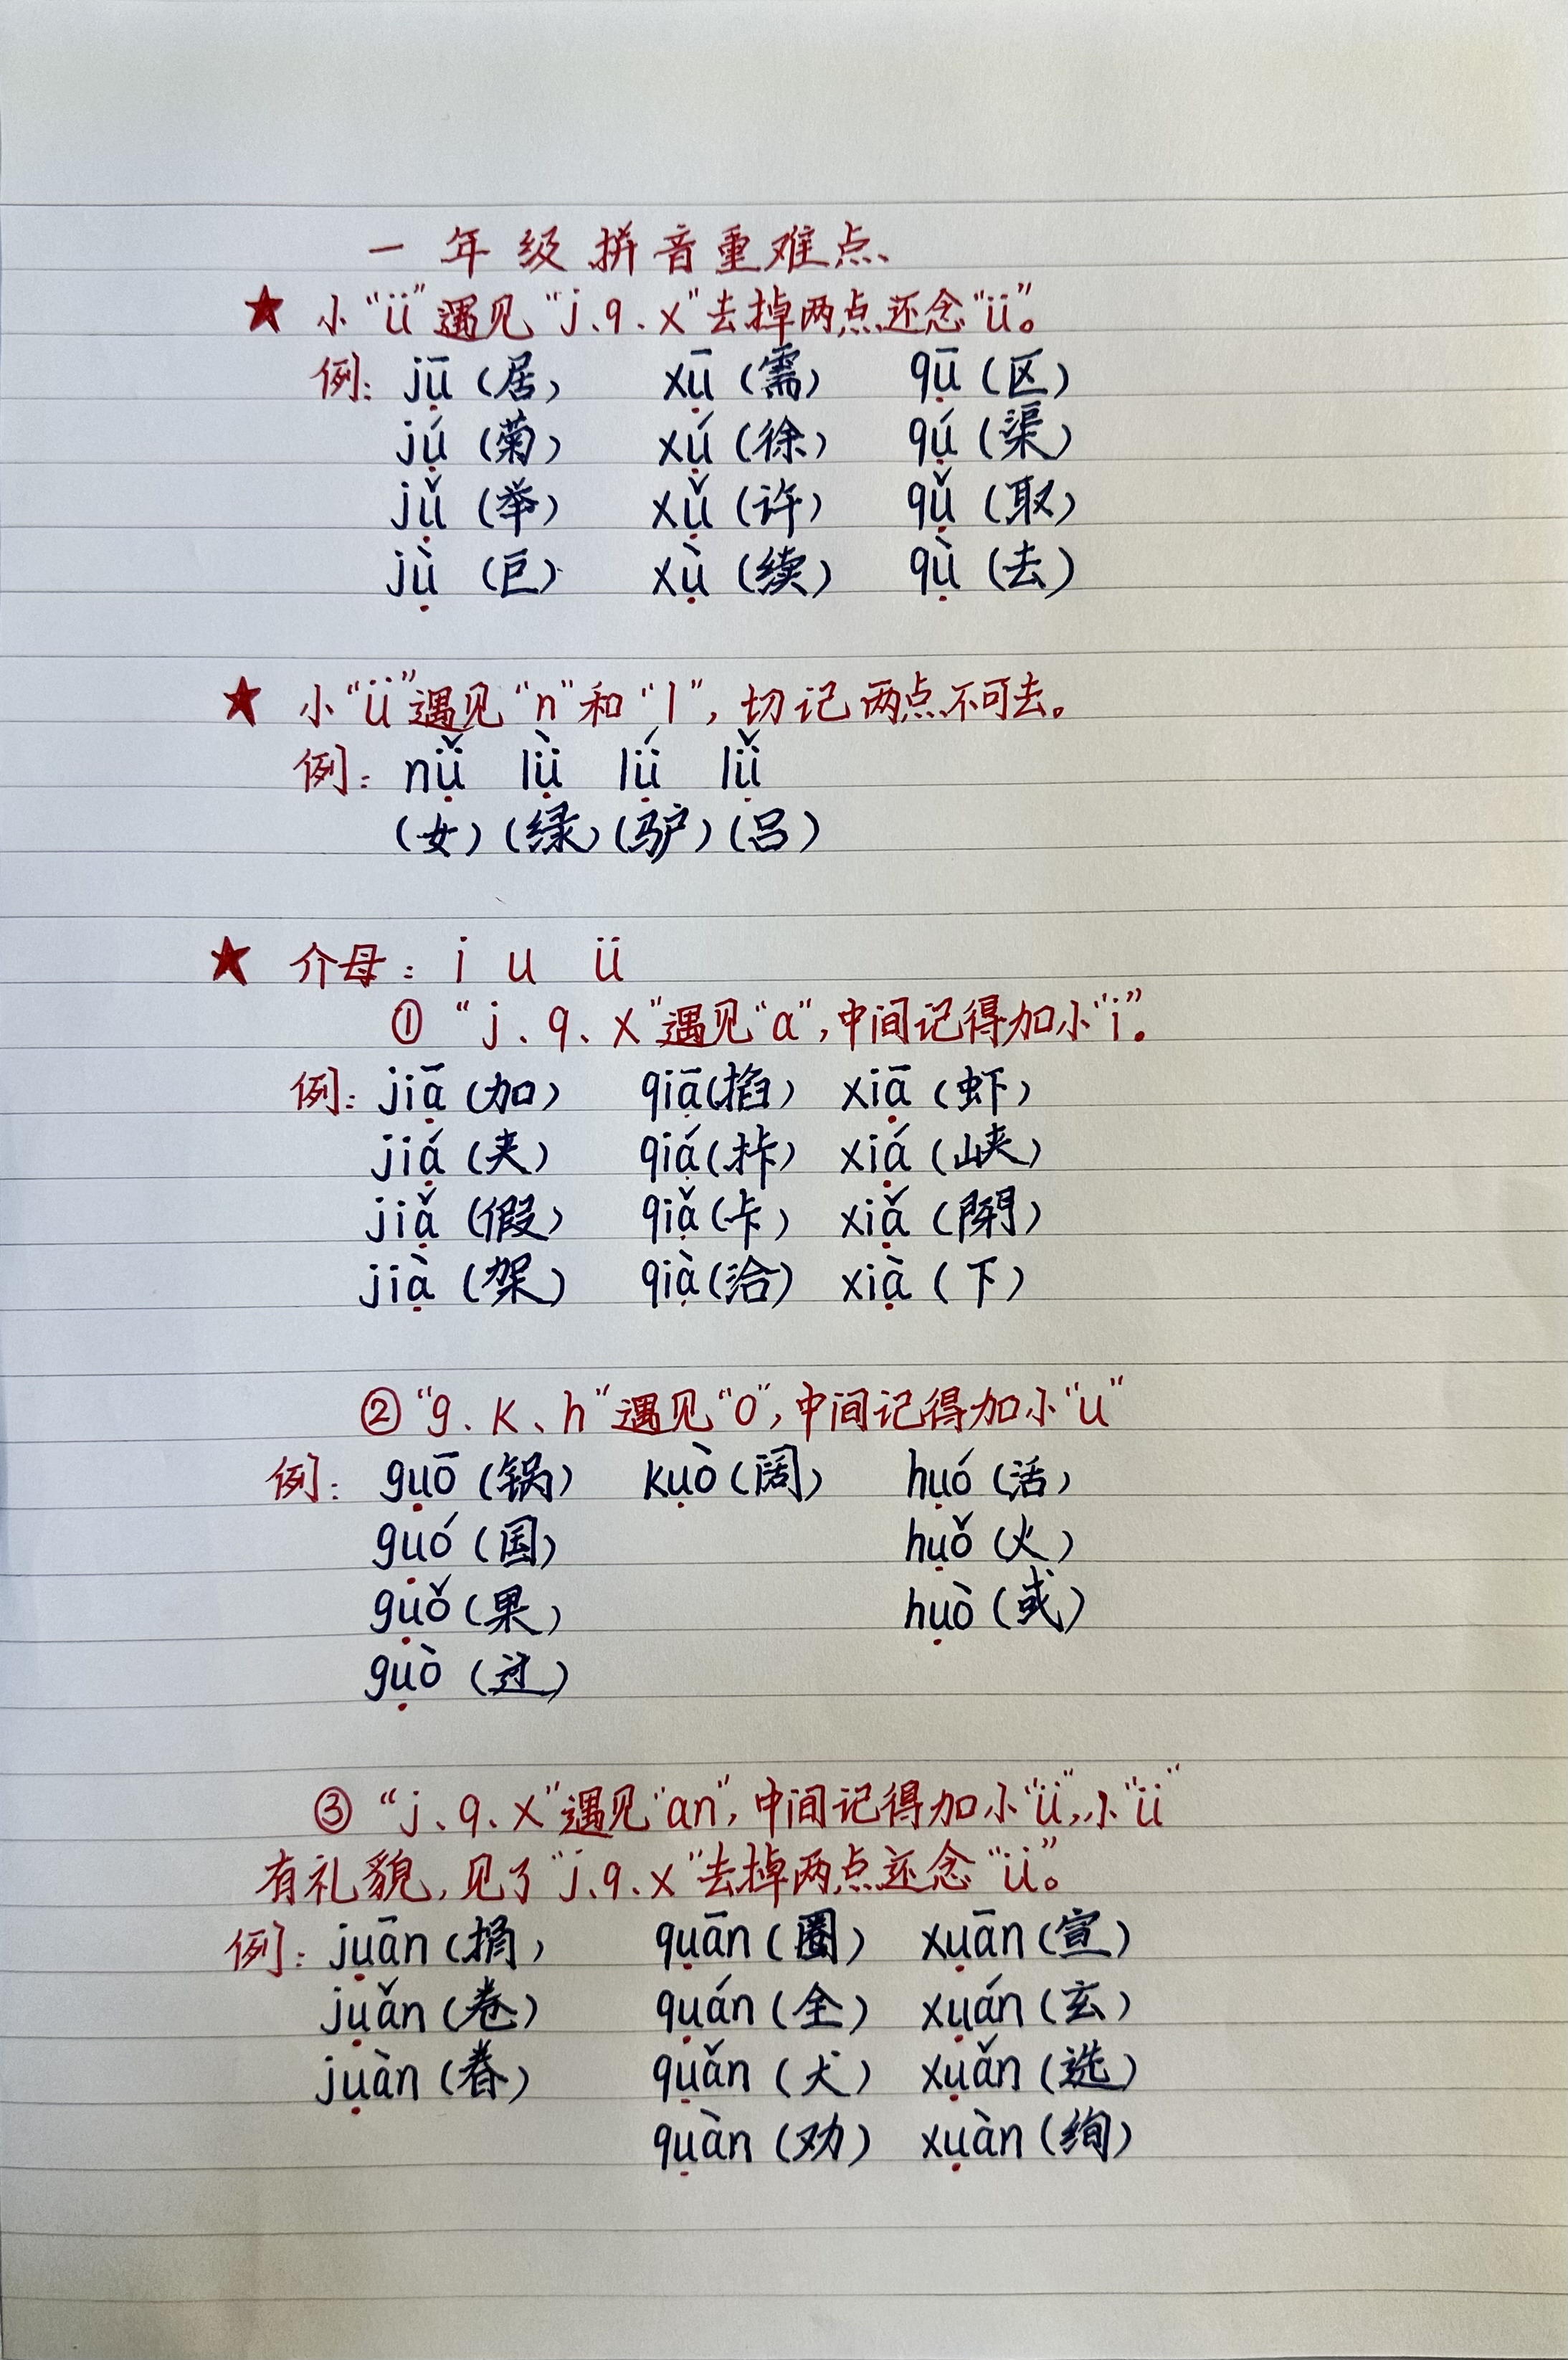 一年级拼音重难点
★ 小“ü”遇见“j、q、x”去掉两点还念“ü”。
例: jū(居) xū(需) qū(区)
jú(菊) xú(徐) qú(渠)
jǔ(举) xǔ(许) qǔ(取)
jù(巨) xù(续) qù(去)
★ 小“ü”遇见“n”和“l”,切记两点不可去。
例: nǚ lǜ lǘ lǚ
(女)(绿)(驴)(吕)
★ 介母: i u ü
① “j、q、x”遇见“a”,中间记得加小“i”。
例: jiā(加) qiā(掐) xiā(虾)
jiá(夹) qiá(拤) xiá(峡)
jiǎ(假) qiǎ(卡) xiǎ(閕)
jià(架) qià(洽) xià(下)
②“g、k、h”遇见“o”,中间记得加小“u”
例: guō(锅) kuò(阔) huó(活)
guó(国) huǒ(火)
guǒ(果) huò(或)
guò(过)
③ “j、q、x”遇见“an”,中间记得加小“ü”,小“ü”
有礼貌,见了“j、q、x”去掉两点还念“ü”。
例: juān(捐) quān(圈) xuān(宣)
juǎn(卷) quán(全) xuán(玄)
juàn(眷) quǎn(犬) xuǎn(选)
quàn(劝) xuàn(绚)